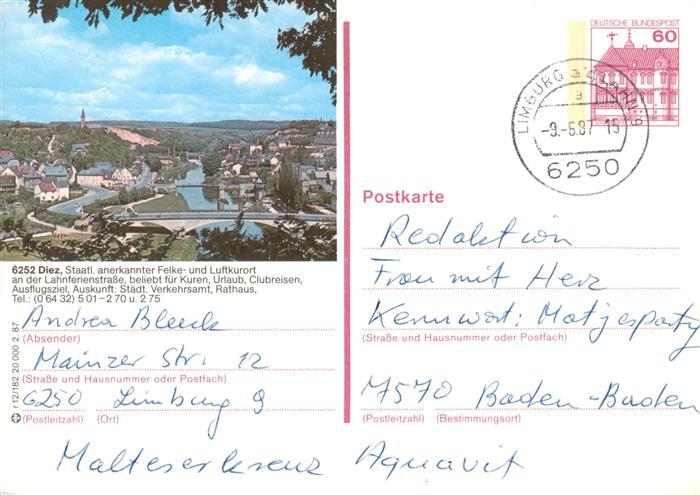 DEUTSCHE BUNDESPOST
60
LIMBURG a d LAHN 9
a
-9.-6.87 15
6250
6252 Diez, Staatl. anerkannter Felke- und Luftkurort
an der Lahnferienstraße, beliebt für Kuren, Urlaub, Clubreisen,
Ausflugsziel, Auskunft: Städt. Verkehrsamt, Rathaus,
Tel.: (0 64 32) 5 01 – 2 70 u. 2 75
Andrea Bleeck
(Absender)
Mainzer Str. 12
(Straße und Hausnummer oder Postfach)
6250 Limburg 9
(Postleitzahl) (Ort)
r 12/182 20 000 2.87
Postkarte
Redaktion
Frau mit Herz
Kennwort: Matjesparty
(Straße und Hausnummer oder Postfach)
7570 Baden-Baden
(Postleitzahl) (Bestimmungsort)
Malteserkreuz Aquavit